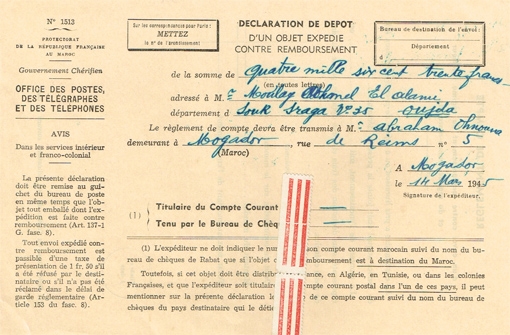 N° 1513
PROTECTORAT
DE LA RÉPUBLIQUE FRANÇAISE
AU MAROC
Gouvernement Chérifien
OFFICE DES POSTES,
DES TÉLÉGRAPHES
ET DES TÉLÉPHONES
AVIS
Dans les services intérieur
et franco-colonial
La présente déclaration
doit être remise au gui-
chet du bureau de poste
en même temps que l'ob-
jet tout emballé dont l'ex-
pédition est faite contre
remboursement (Art. 137-1
G. fasc. 8).
Tout envoi expédié con-
tre remboursement est
passible d'une taxe de
présentation de 1 fr. 50 s'il
a été refusé par le desti-
nataire ou s'il n'a pas été
réclamé dans le délai de
garde réglementaire (Ar-
ticle 153 du fasc. 8).
Sur les correspondances pour Paris :
METTEZ
le n° de l'arrondissement
DÉCLARATION DE DÉPOT
D'UN OBJET EXPÉDIÉ
CONTRE REMBOURSEMENT
Bureau de destination de l'envoi :
Département
d
de la somme de quatre mille six cent trente francs
(en toutes lettres)
adressé à M. r Moulay El alami
département d Souk N° 35 Oujda
Le règlement de compte devra être transmis à M. r abraham
demeurant à Mogador, rue de Reims n° 5
(Maroc)
A Mogador
le 14 Mars 1945
Signature de l'expéditeur.
(1) Titulaire du Compte Courant
Tenu par le Bureau de Chèq
(1) L'expéditeur ne doit indiquer le nu son compte courant marocain suivi du nom du bu-
reau de chèques de Rabat que si l'objet est à destination du Maroc.
Toutefois, si cet objet doit être distrib ance, en Algérie, en Tunisie, ou dans les colonies
Françaises, et que l'expéditeur soit titulaire compte courant postal dans l'un de ces pays, il peut
mentionner sur la présente déclaration l de ce compte courant suivi du nom du bureau de
chèques du pays destinataire qui le déti